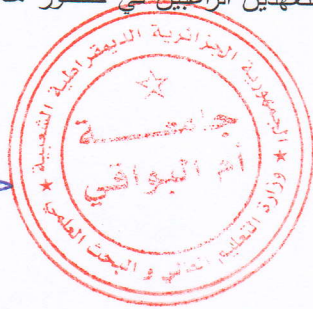 الراغبين في
الجمهورية الجزائرية الديمقراطية الشعبية
وزارة التعليم العالي و البحث العلمي
جامعـــــــة
أم البواقي